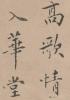 高歌情
入華堂